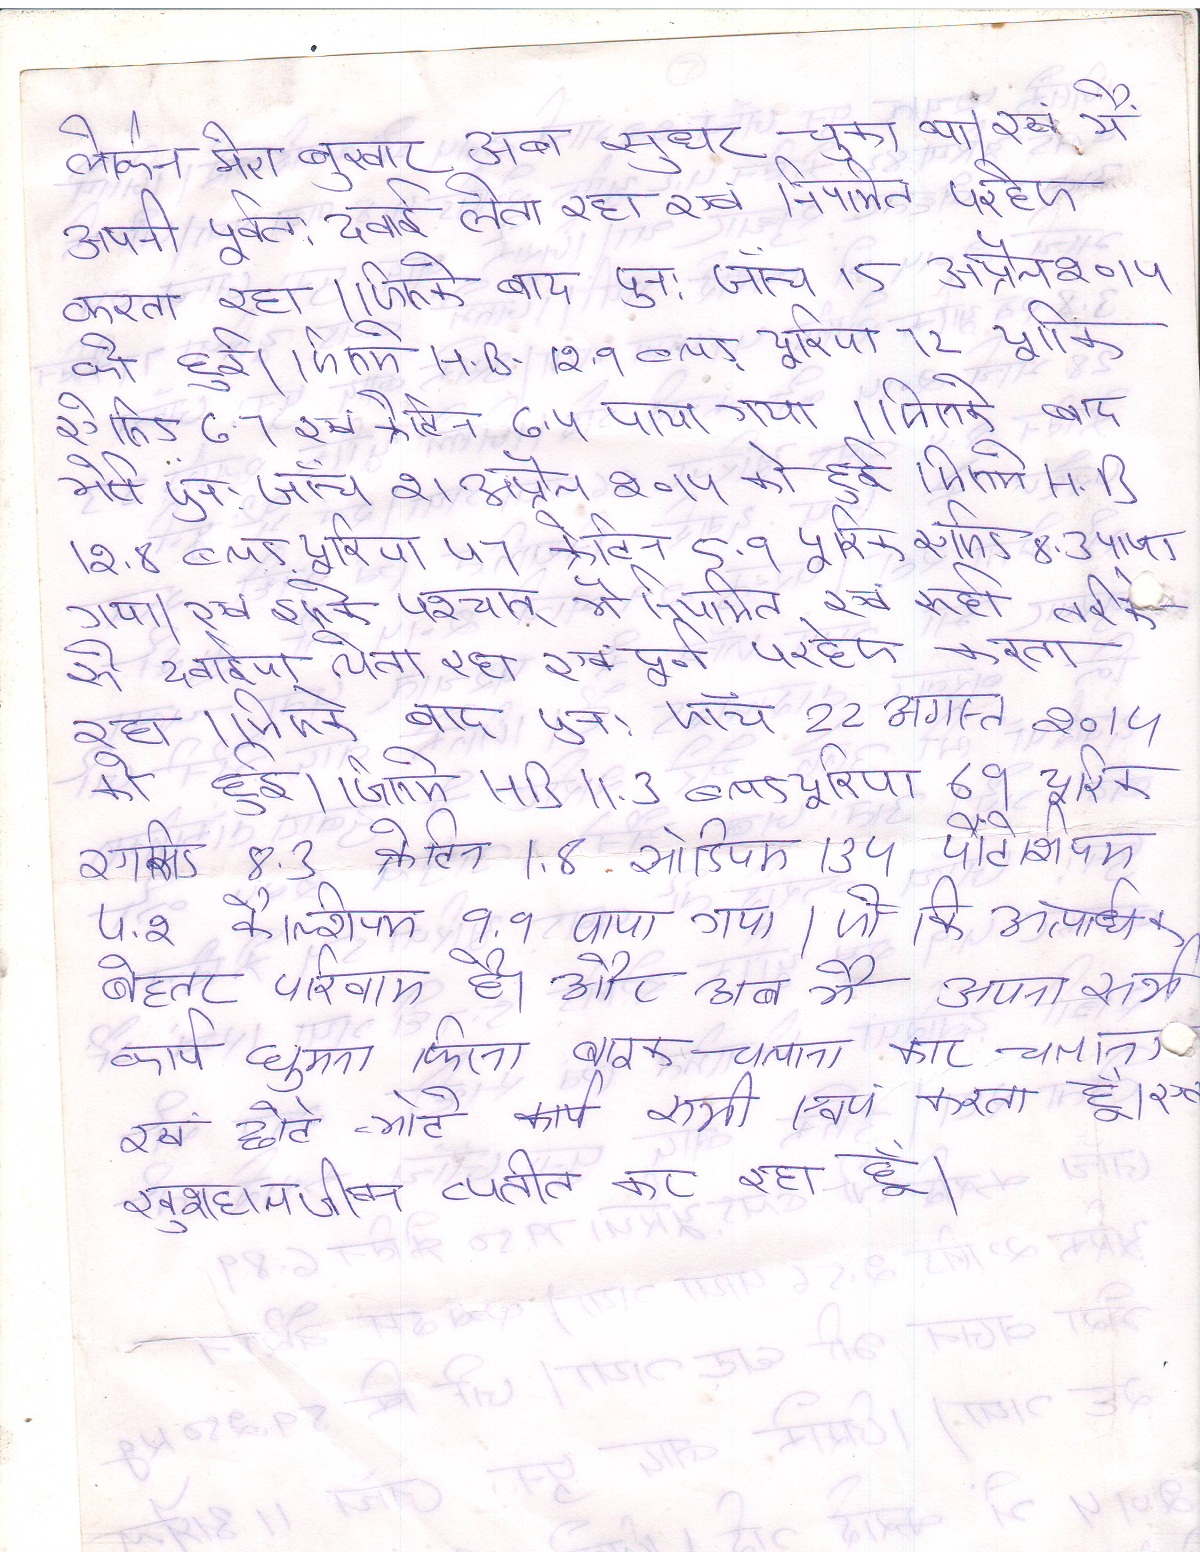 लेकिन मेरा बुखार अब सुधर चुका था। एवं मैं
अपनी पूर्वतः दवाई लेता रहा एवं नियमित परहेज
करता रहा। जिसके बाद पुनः जाँच 15 अप्रैल 2014
को हुई। जिसमे H.B. 12.9 ब्लड यूरिया 72 यूरिक
एसिड 6.7 एवं क्रेटिन 6.4 पाया गया। जिसके बाद
मेरी पुनः जाँच 21 अप्रैल 2014 को हुई जिसमे H.B
12.8 ब्लड यूरिया 47 क्रेटिन 5.9 यूरिक एसिड 8.3 पाया
गया। एवं इसके पश्चात् मै नियमित एवं सही तरीके
से दवाईया लेता रहा एवं पूर्ण परहेज करता
रहा। जिसके बाद पुनः जाँच 22 अगस्त 2014
को हुई। जिसमे HB 11.3 ब्लड यूरिया 69 यूरिक
एसिड 8.3 क्रेटिन 1.8 सोडियम 134 पौटेशियम
4.2 कैल्शियम 9.9 पाया गया। जो कि अत्याधिक
बेहतर परिणाम है। और अब मै अपना सभी
कार्य घुमना फिरना बाइक चलाना कार चलाना
एवं छोटे मोटे कार्य सभी स्वयं करता हूँ। एवं
खुशहाल जीवन व्यतीत कर रहा हूँ।